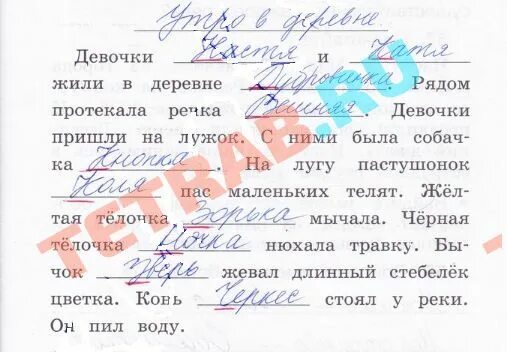 Утро в деревне.
Девочки Настя и Катя
жили в деревне Дубровинка. Рядом
протекала речка Вешняя. Девочки
пришли на лужок. С ними была собач-
ка Кнопка. На лугу пастушонок
Коля пас маленьких телят. Жёл-
тая тёлочка Зорька мычала. Чёрная
тёлочка Ночка нюхала травку. Бы-
чок Зверь жевал длинный стебелёк
цветка. Конь Черкес стоял у реки.
Он пил воду.
TETRAB.RU